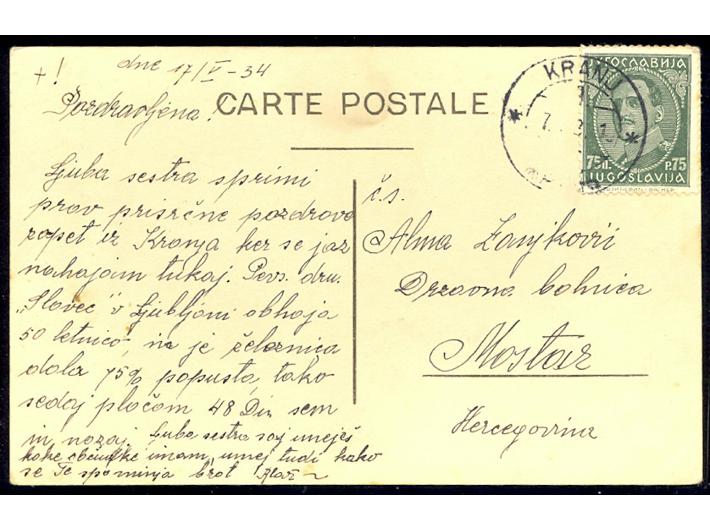 +!
dne 17/V-34
Pozdravljena!
CARTE POSTALE
Ljuba sestra sprimi
prav prisrčne pozdrave
zopet iz Kranja ker se jaz
nahajam tukaj. Pevs. dru.
"Slavec" v Ljubljani obhaja
50 letnico, in je železnica
dala 75% popusta, tako
sedaj plačam 48 Din sem
in nazaj. Ljuba sestra saj umeješ
kake občutke imam, umej tudi kako
se Te spominja brat
č.s.
Alma
Državna bolnica
Mostar
Hercegovina
KRANJ
ЈУГОСЛАВИЈА
75П. P.75
JUGOSLAVIJA